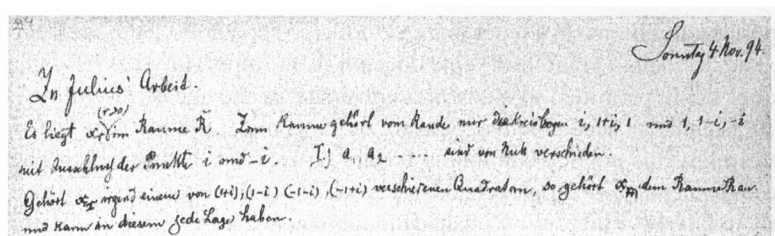 Sonntag 4 Nov. 94.
In Julius' Arbeit.
(r>0)
Es liegt x_r im Raume R. Zum Raume gehört vom Rande nur die Kreisbogen i, 1+i, 1 und 1, 1-i, -i
mit Ausschluß der Punkte i und -i. a_1, a_2 .... sind von Null verschieden.
Gehört x_r irgend einem von (1+i), (1-i) (-1-i), (-1+i) verschiedenen Quadraten, so gehört dem Raume R an
und kann in diesem jede Lage haben.